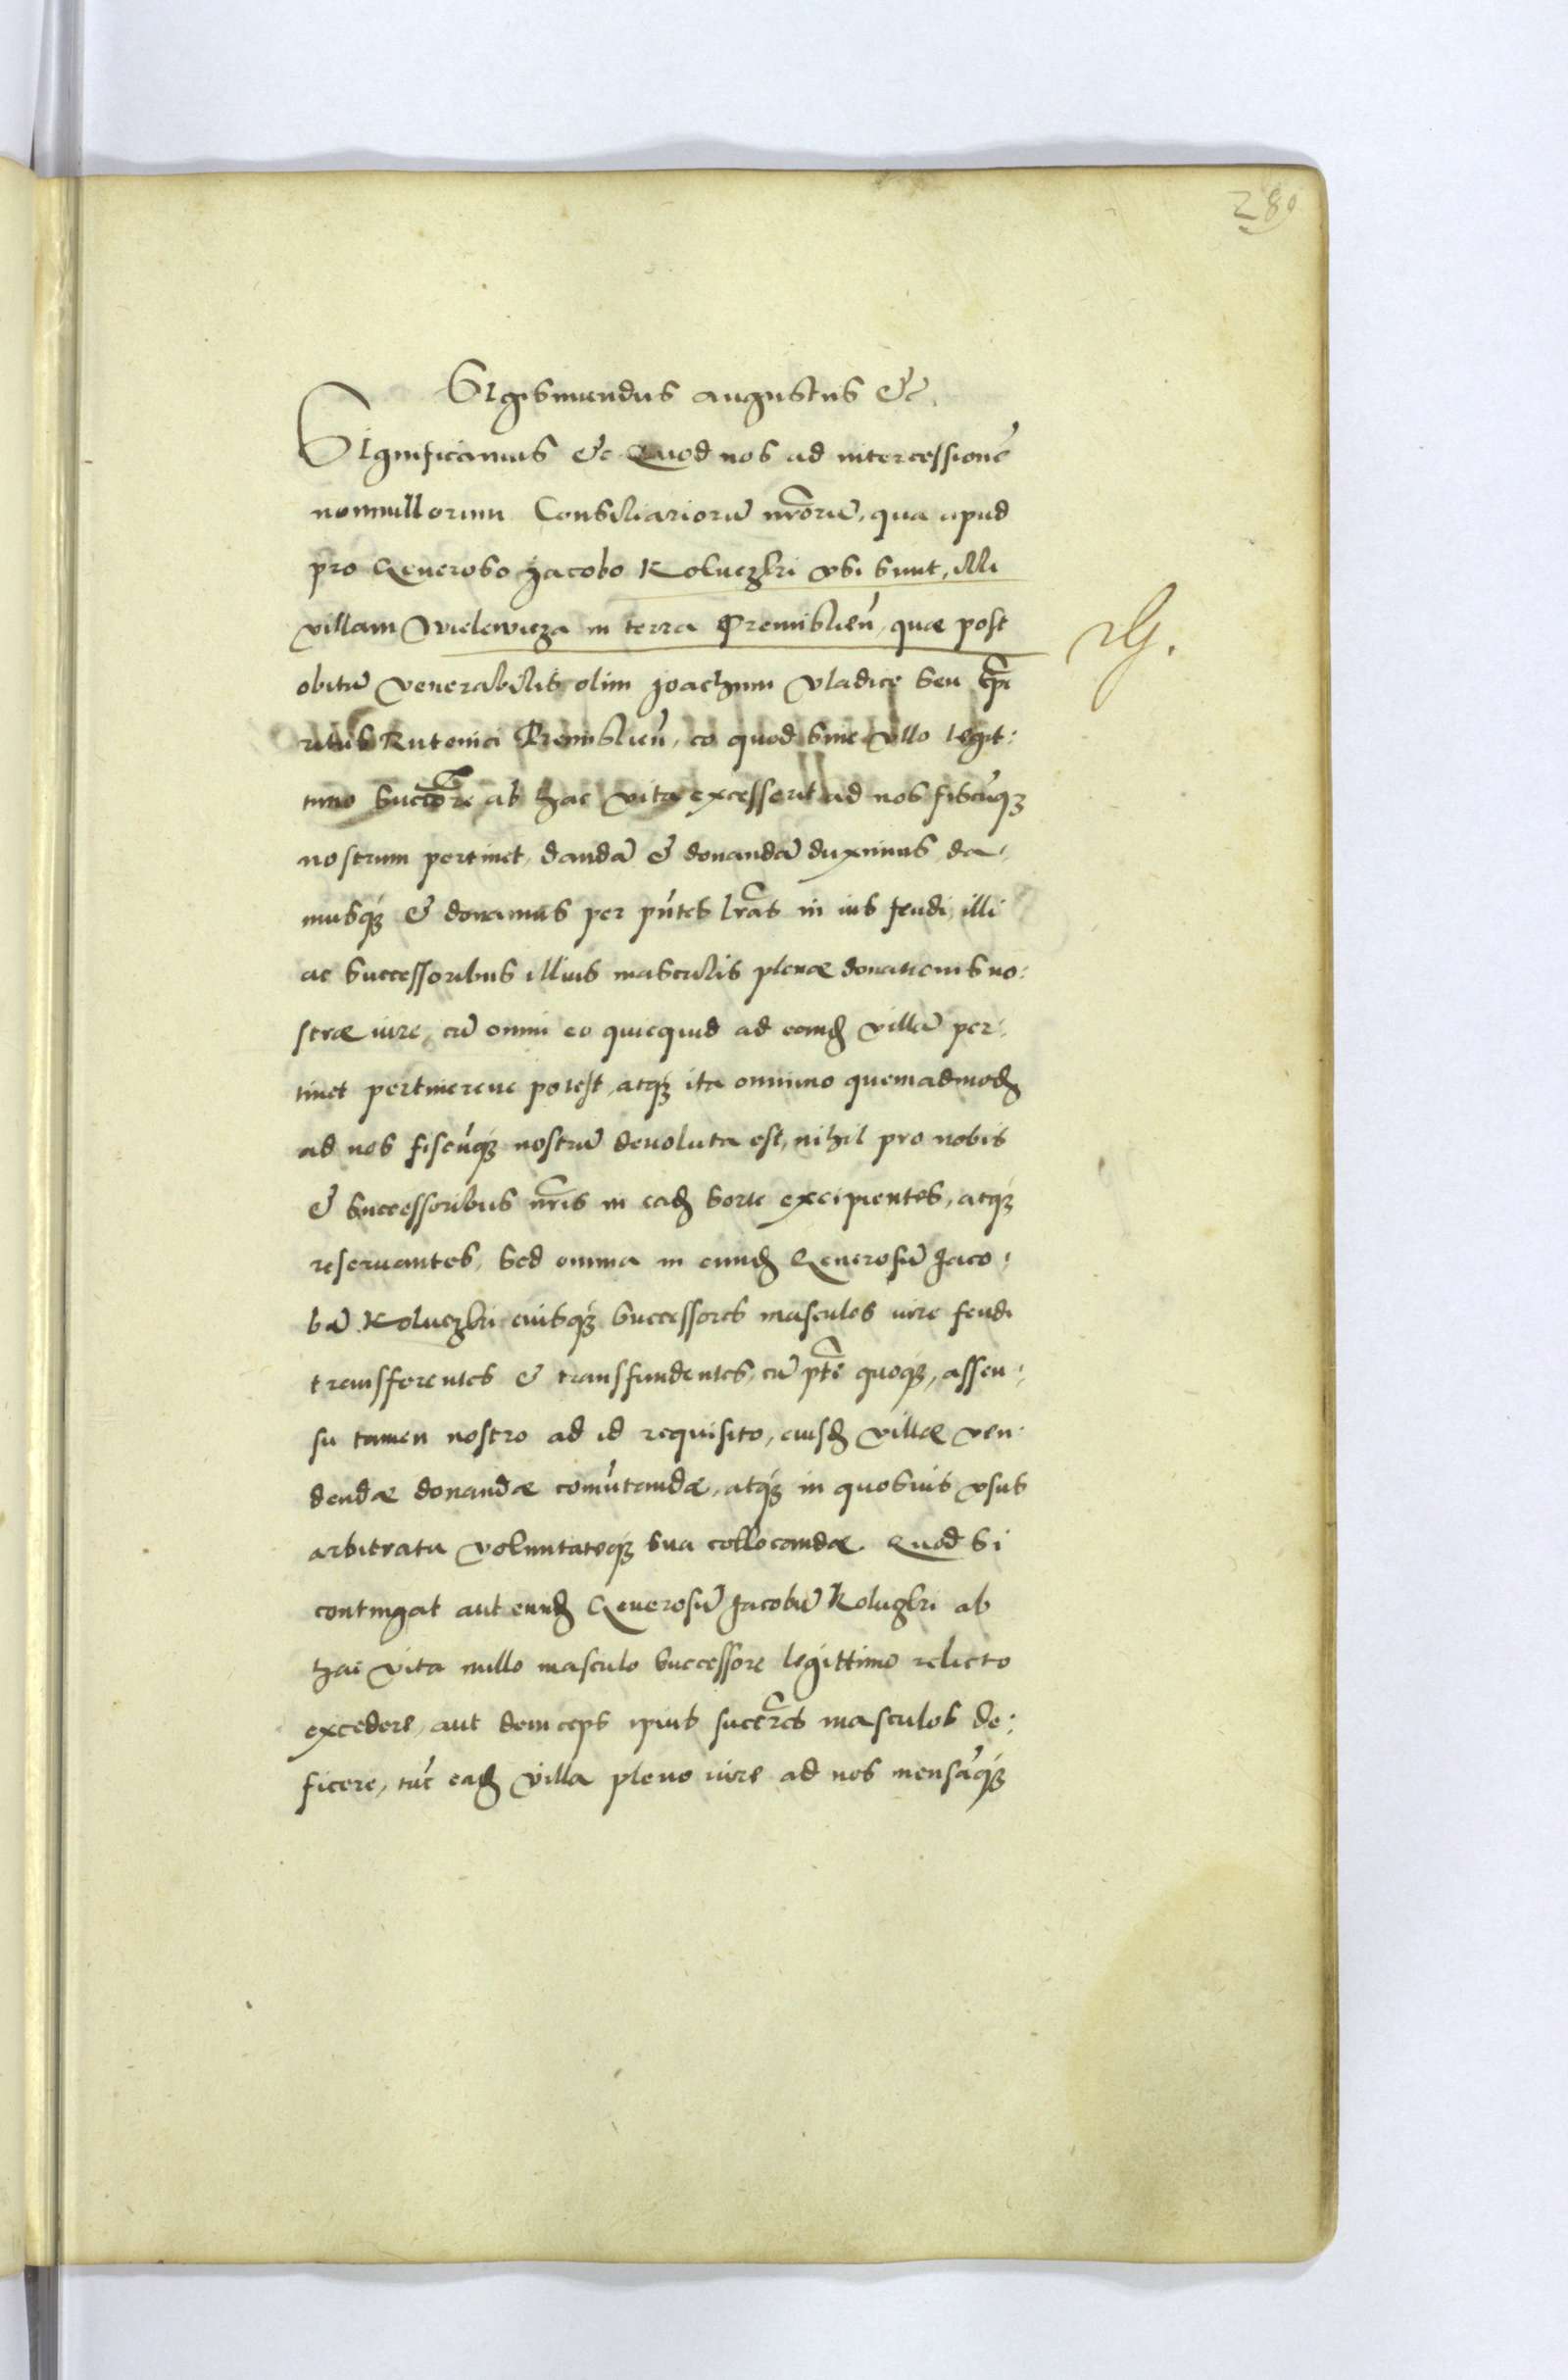 289
Sigismundus Augustus &c.
Significamus &c Quod nos ad intercessionē
nonnullorum Consiliariorū nr̄orū, qua apud
pro Generoso Jacobo Koluczki vsi sunt, illi
villam Wielewicza in terra Premislien̄, quæ post
obitū venerabilis olim Joachim Vladice seu Ep̄i
ritus Rutenici Premislien̄, eo quod sine vllo legit:
timo succ̄ore ab hac vita excesserit ad nos fiscūq₃
nostrum pertinet, dandā & donandā duximus, da:
musq₃ & donamus per pn̄tes lr̄as in ius feudi illi
ac successoribus illius masculis plenæ donationis no:
stræ iure, cū omni eo quicquid ad eandꝫ villā per:
tinet pertinereue potest, atq₃ ita omnino quemadmodꝫ
ad nos fiscūq₃ nostrū deuoluta est, nihil pro nobis
& successoribus nr̄is in eadꝫ sorte excipientes, atq₃
reseruantes, sed omnia in eundꝫ Generosū Jaco:
bū Koluczki eiusq₃ successores masculos iure feudi
transferentes & transfundentes, cū ptē quoq₃, assen:
su tamen nostro ad id requisito, eiusdꝫ villæ ven:
dendæ donandæ com̄utandæ, atq₃ in quosuis vsus
arbitratu voluntateq₃ sua collocandæ. Quod si
contingat aut eundꝫ Generosū Jacobū Koluczki ab
hac vita nullo masculo successore legittimo relicto
excedere, aut deinceps ipius succ̄res masculos de:
ficere, tūc eadꝫ villa pleno iure ad nos mensāq₃